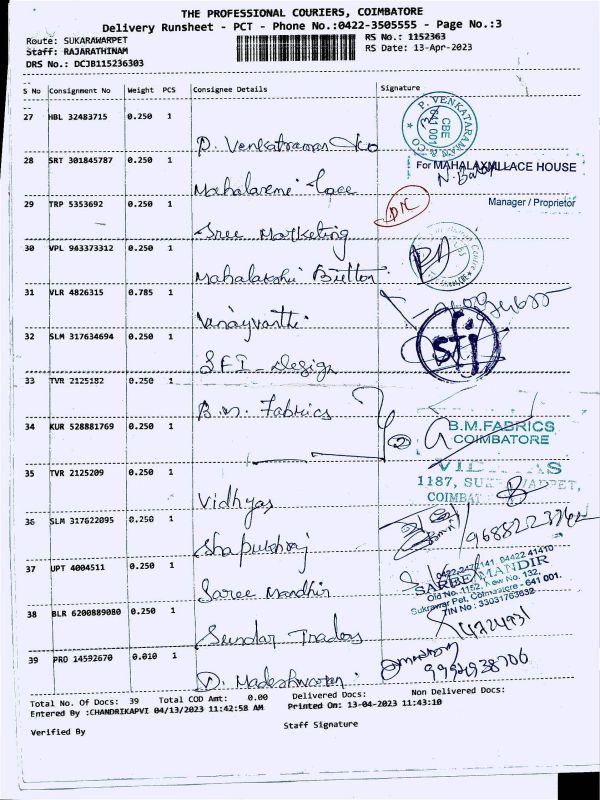 THE PROFESSIONAL COURIERS, COIMBATORE
Delivery Runsheet - PCT - Phone No.:0422-3505555 - Page No.:3
Route: SUKARAWARPET
RS No.: 1152363
Staff: RAJARATHINAM
RS Date: 13-Apr-2023
DRS No.: DCJB115236303
S No Consignment No Weight PCS Consignee Details Signature
27 HBL 32483715 0.250 1
P. Venkatraman &co
P. VENKATARAMAN & CO
CBE
641 001
28 SRT 301845787 0.250 1
Mahalaxmi Lace
For MAHALAXMI LACE HOUSE
Manager / Proprietor
29 TRP 5353692 0.250 1
Sree Marketing
30 VPL 943373312 0.250 1
Mahalakshi Button
31 VLR 4826315 0.785 1
Vanayvanthi
32 SLM 317634694 0.250 1
S.F.I - Design
sfi
33 TVR 2125182 0.250 1
B.M. Fabrics
34 KUR 528881769 0.250 1
2
B.M.FABRICS
COIMBATORE
35 TVR 2125209 0.250 1
Vidhyas
1187,
36 SLM 317622095 0.250 1
37 UPT 4004511 0.250 1
Saree Mandhir
SAREE MANDIR
Old No. 1152, New No. 132,
Sukrawar Pet, Coimbatore - 641 001.
TIN No : 33031763632
38 BLR 6200889080 0.250 1
Sundar Traders
39 PRO 14592670 0.010 1
D. Madeshwaran
9994938706
Total No. Of Docs: 39 Total COD Amt: 0.00 Delivered Docs: Non Delivered Docs:
Entered By :CHANDRIKAPVI 04/13/2023 11:42:58 AM Printed On: 13-04-2023 11:43:10
Verified By Staff Signature